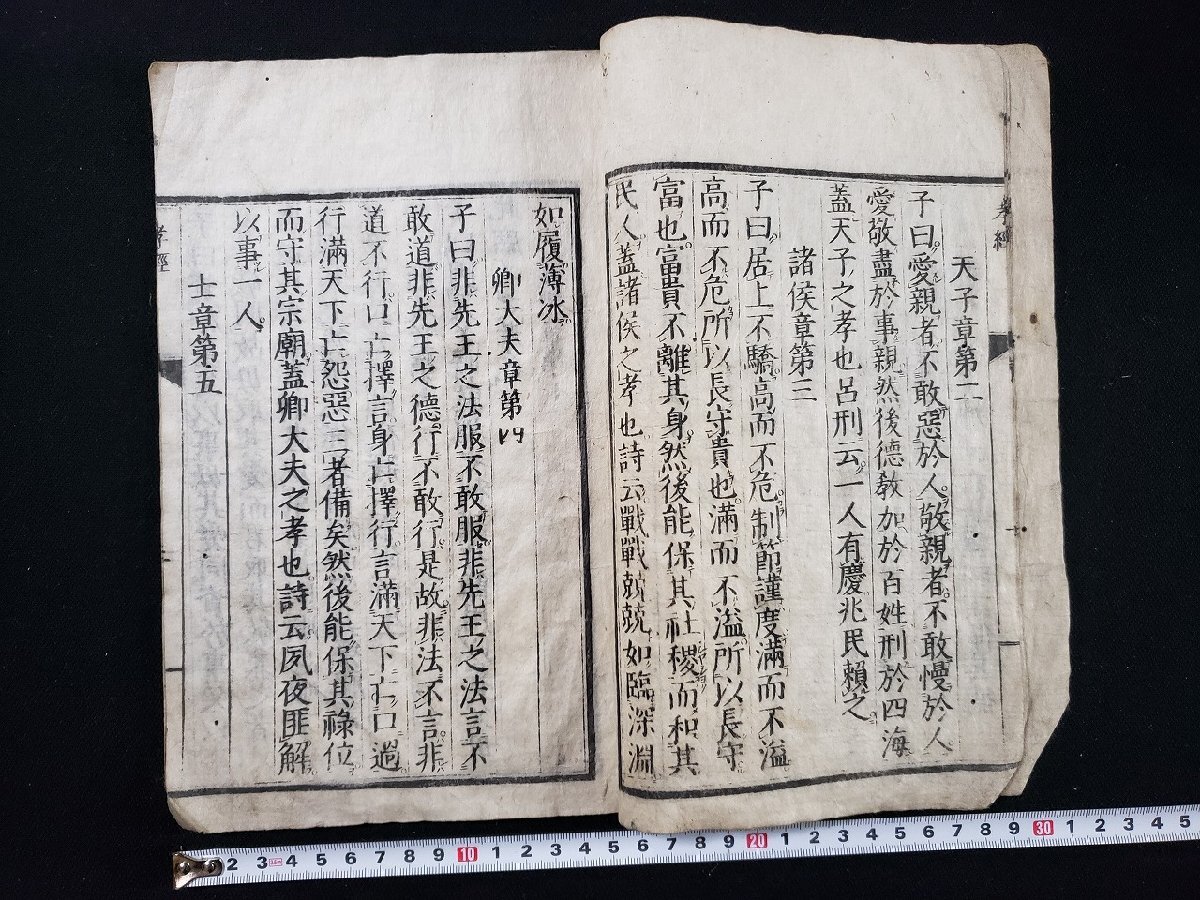 孝經
天子章第二
子曰愛親者不敢惡於人敬親者不敢慢於人
愛敬盡於事親然後德教加於百姓刑於四海
蓋天子之孝也呂刑云一人有慶兆民賴之
諸侯章第三
子曰居上不驕高而不危制節謹度滿而不溢
高而不危所以長守貴也滿而不溢所以長守
富也富貴不離其身然後能保其社稷而和其
民人蓋諸侯之孝也詩云戰戰兢兢如臨深淵
如履薄冰
卿大夫章第四
子曰非先王之法服不敢服非先王之法言不
敢道非先王之德行不敢行是故非法不言非
道不行口亡擇言身亡擇行言滿天下亡口過
行滿天下亡怨惡三者備矣然後能保其祿位
而守其宗廟蓋卿大夫之孝也詩云夙夜匪解
以事一人
士章第五
孝經
1 2 3 4 5 6 7 8 9 10 1 2 3 4 5 6 7 8 9 20 1 2 3 4 5 6 7 8 9 30 1 2 3 4 5